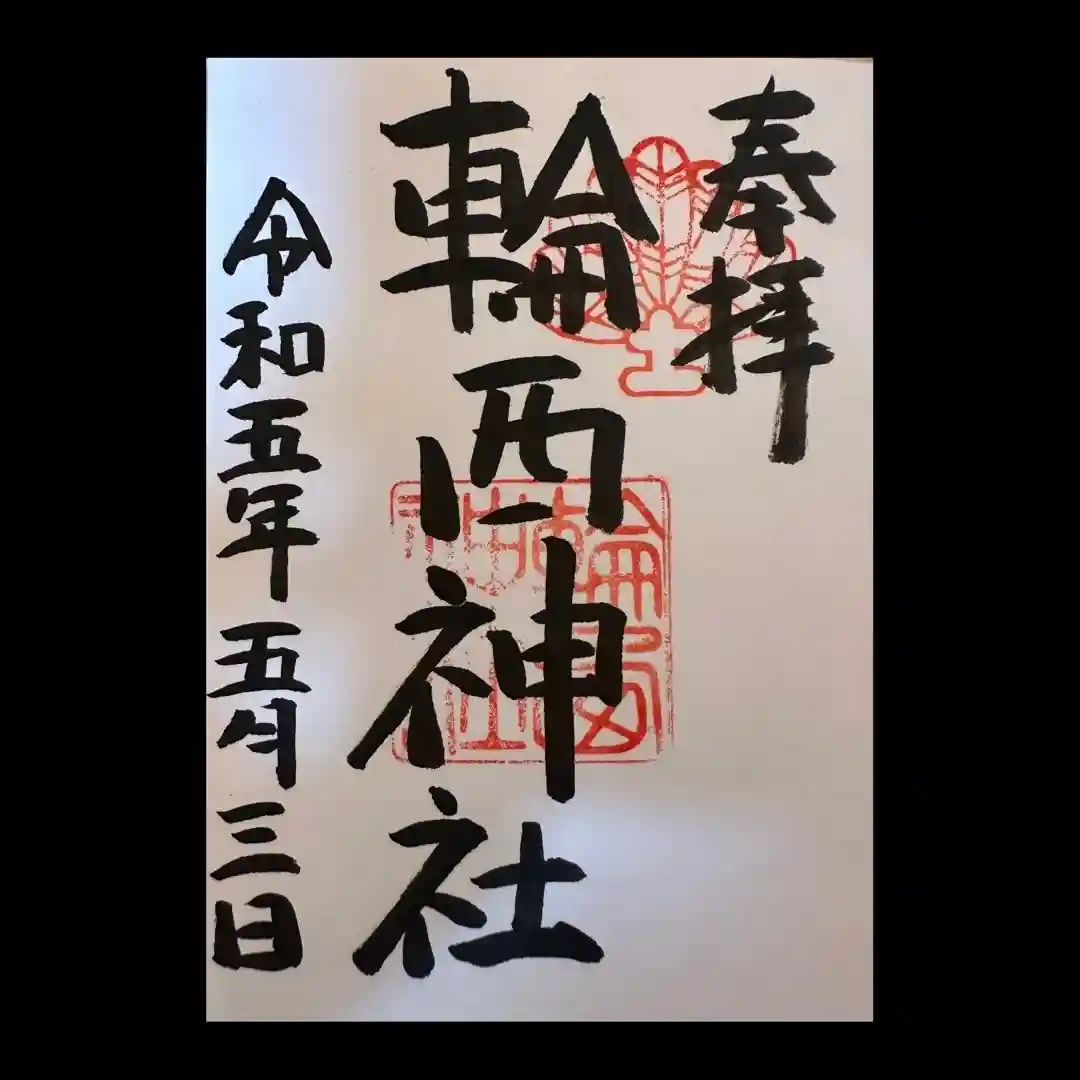 奉拝
輪西神社
輪西神社
令和五年五月三日